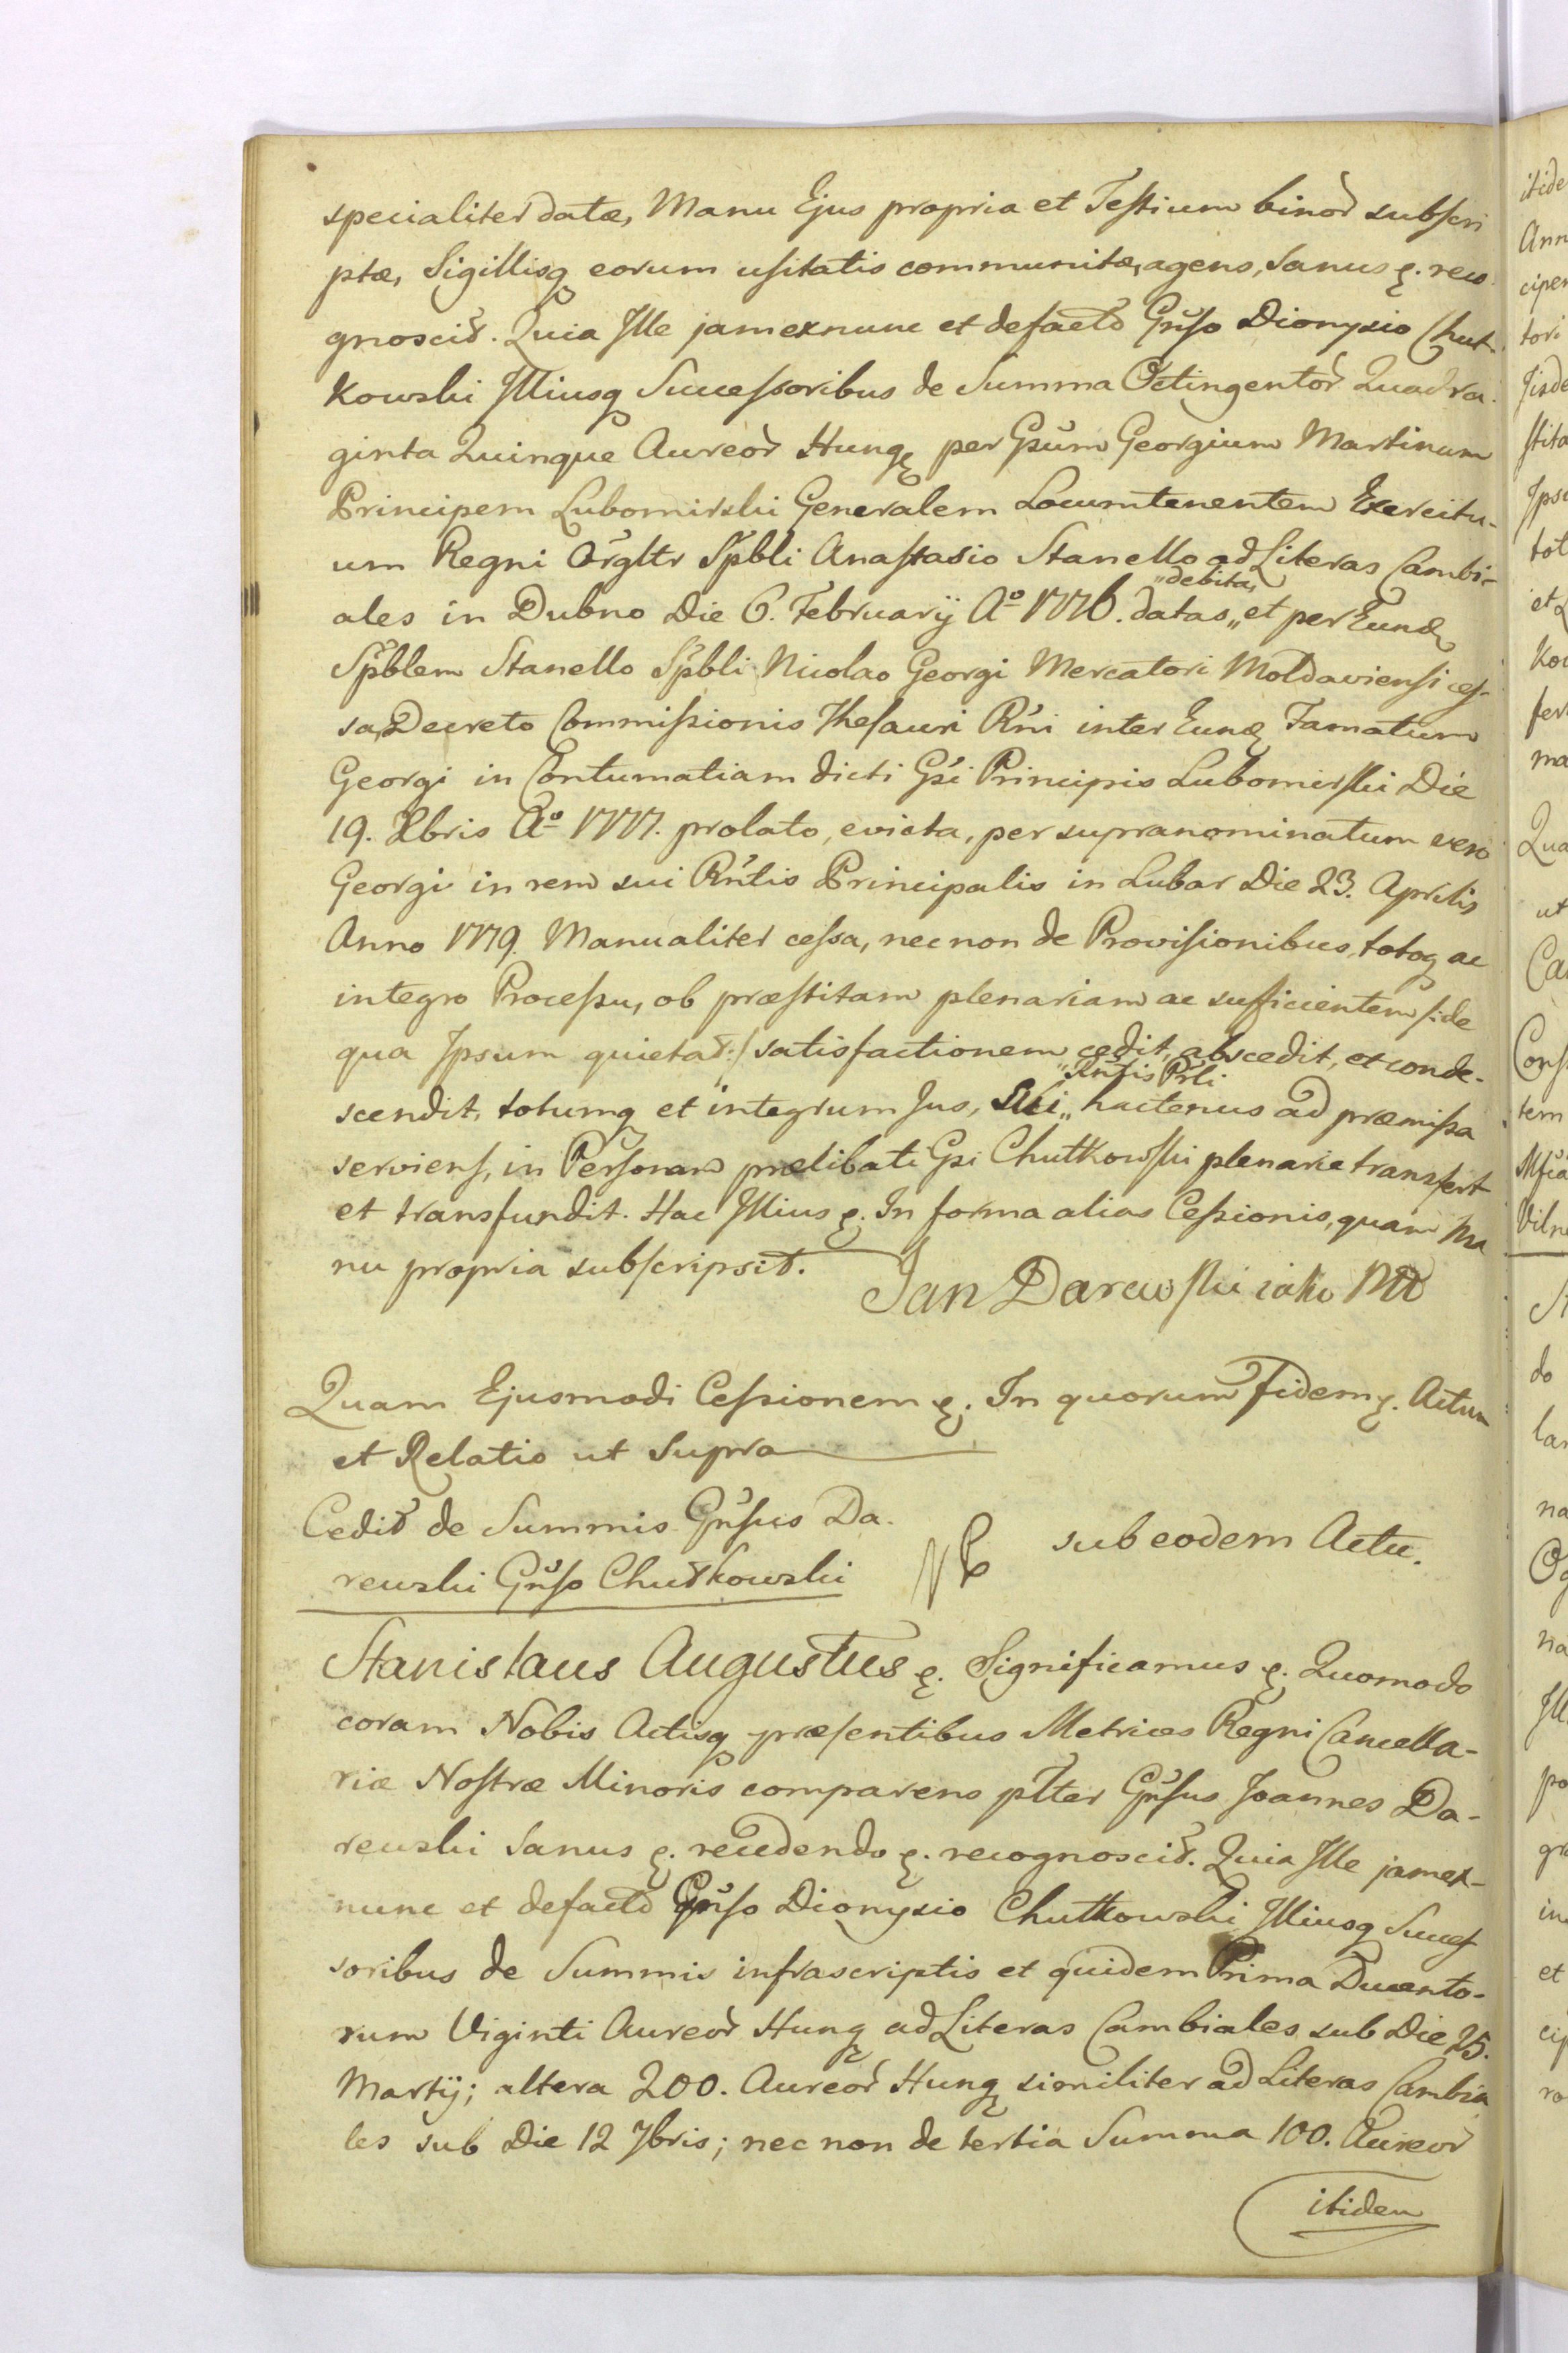 specialiter datæ, Manu Ejus propria et Testium binor̃ subscri
ptæ, Sigillisq eorum usitatis communitæ, agens, sanus ę. reco
gnoscit. Quia Ille jam exnunc et defacto Gñso Dionysio Chut-
kowski Illiusq Successoribus de Summa Octingentor̃ Quadra
ginta Quinque Aureor̃ Hung per Gsum Georgium Martinum
Principem Lubomirski Generalem Locumtenentem Exercitu-
um Regni Orgltr Spbli Anastasio Stanello ad Literas Cambi-
ales in Dubno Die 6. Februarÿ Aº 1776. datas „debita„ et per Eund
Spblem Stanello Spbli Nicolao Georgi Mercatori Moldaviensi ces-
sa, Decreto Commissionis Thesauri Rni inter Eund Famatum
Georgi in Contumatiam dicti Gsi Principis Lubomirski Die
19. Xbris Aº 1777. prolato, evicta, per supranominatum vero
Georgi in rem sui Rntis Principalis in Lubar Die 23. Aprilis
Anno 1779. Manualiter cessa, nec non de Provisionibus, totoq ac
integro Processu, ob præstitam plenariam ac sufficientem /:de
qua Ipsum quietat:/ satisfactionem cedit, abscedit, et conde-
scendit, totumq et integrum Jus, Sui „Rntis Prli„ hactenus ad præmissa
serviens, in Personam prælibati Gsi Chutkowski plenarie transfert
et transfundit. Hac Illius ę. In forma alias Cessionis, quam Ma
nu propria subscripsit.
Jan Darewski iako MP
Quam Ejusmodi Cessionem ę. In quorum Fidem ę. Actum
et Relatio ut Supra
Cedit de Summis Gñsus Da-
rewski Gñso Chutkowski
NB sub eodem Actu.
Stanislaus Augustus ę. Significamus ę. Quomodo
coram Nobis Actisq præsentibus Metrices Regni Cancella-
riæ Nostræ Minoris comparens plter Gñsus Joannes Da-
rewski sanus ę. recedendo ę. recognoscit. Quia Ille jamex-
nunc et defacto Gñso Dionysio Chutkowski Illiusq Succes
soribus de Summis infrascriptis et quidem Prima Ducento-
rum Viginti Aureor̃ Hung ad Literas Cambiales sub Die 25.
Martÿ; altera 200. Aureor̃ Hung similiter ad Literas Cambia
les sub Die 12 7bris; nec non de tertia Summa 100. Aureor̃
itidem